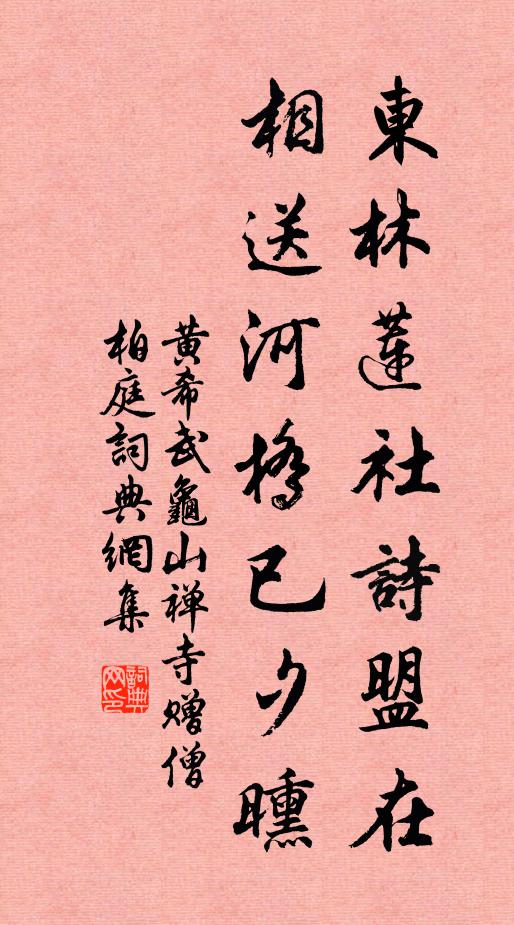 東林蓮社詩盟在
相送河橋已夕曛
黄希武龜山禅寺赠僧
柏庭詞典網集
詞典网印